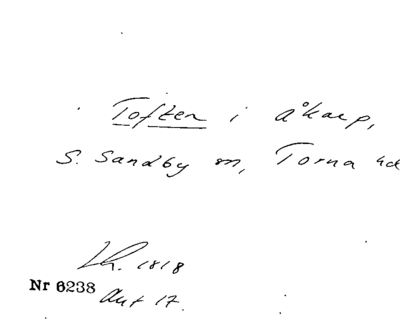 Toften i åkarp,
S. Sandby sn, Torna hd
Lh. 1818
Nr 6238
Aut 17.